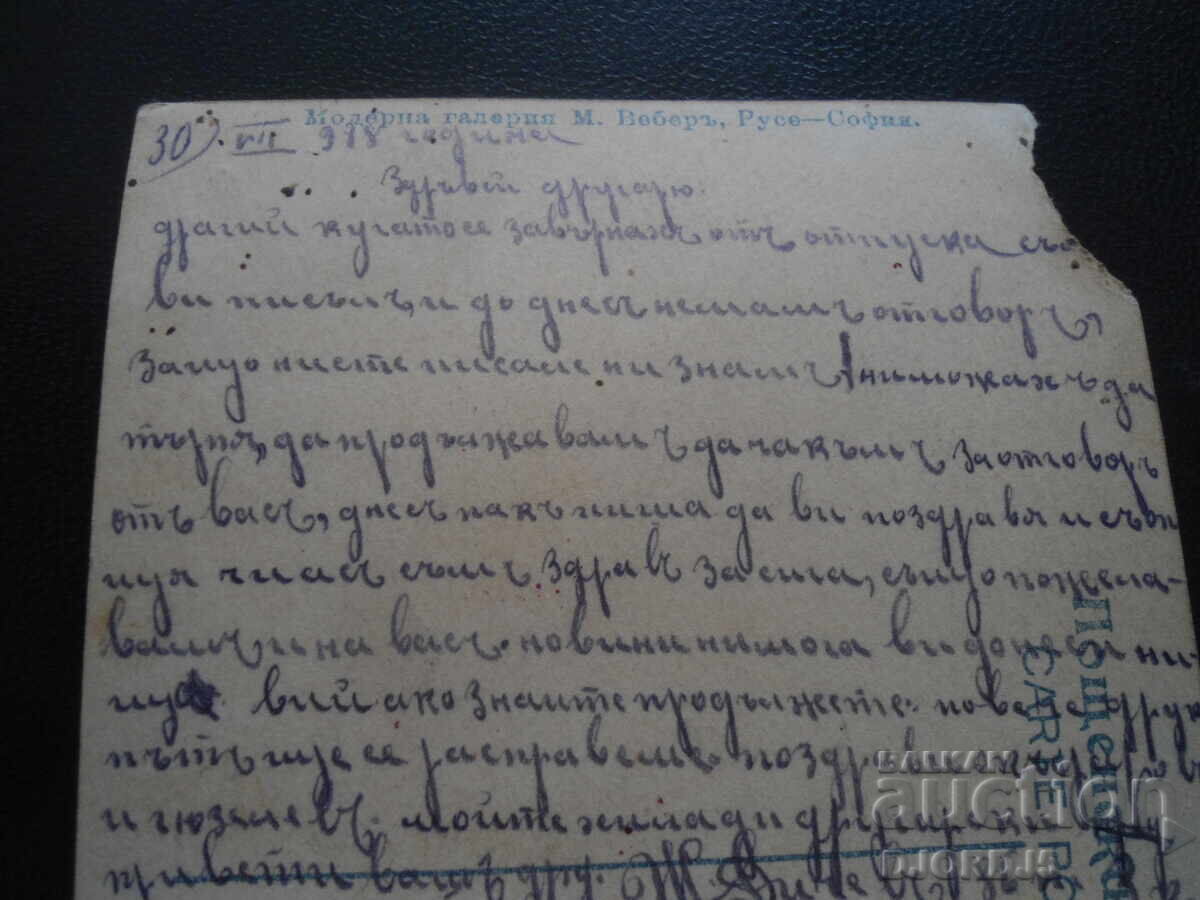 Модерна галерия М. Веберъ, Русе—София.
30 VII 918 година
Здравей другарю:
драгий когатосе завърнахъ отъ отпуска
ви писъмъ, и до днесъ немамъ отговоръ,
защо ни сте писале ни знамъ, ниможахъ да
търпя, да продължавамъ да чакъмъ за отговоръ
отъ васъ, днесъ пакъ пиша да ви поздравя и
щя че и асъ съмъ здравъ засига, също пожела-
вамъ и на васъ. новини нимога ви донеси ни-
що вий ако знаите продължете. повече друг
пътъ ще се расправеме поздрави
и гюзелевъ. мойте млади другарски
привети вашъ др. Ж.
ПОЩЕНСКА
CARTE
BALKAN
auction
DJORDJ5